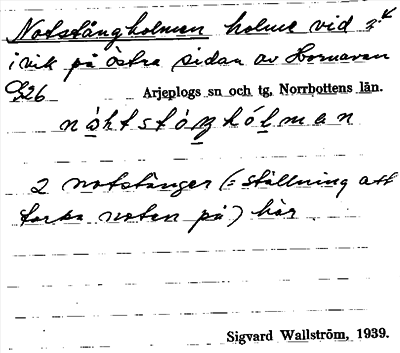 Notstångholmen holme vid
i vik på östra sidan av Hornavan
Arjeplogs sn och tg, Norrbottens län.
2 notstänger (= ställning att
torka noten på) här
Sigvard Wallström, 1939.